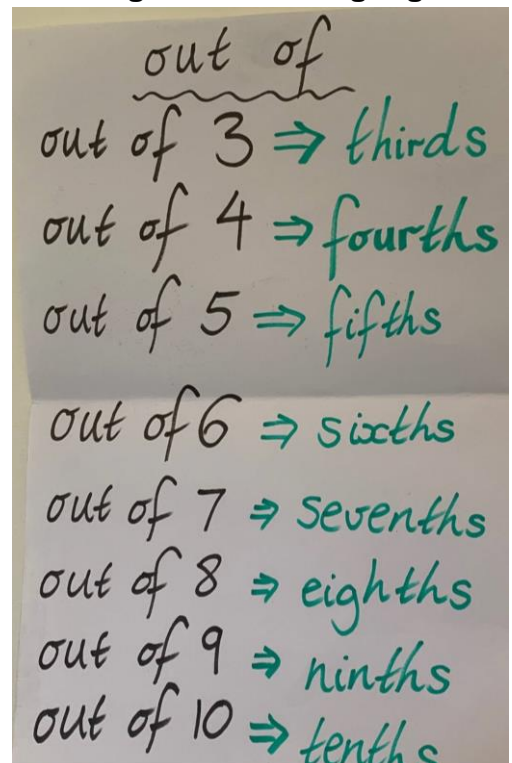 out of
out of 3 ⇒ thirds
out of 4 ⇒ fourths
out of 5 ⇒ fifths
out of 6 ⇒ sixths
out of 7 ⇒ sevenths
out of 8 ⇒ eighths
out of 9 ⇒ ninths
out of 10 ⇒ tenths